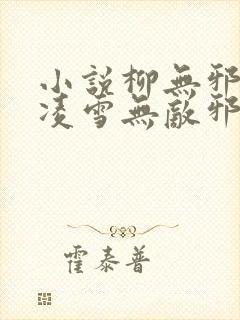 小說柳無邪
凌雪無敵邪
霍泰普